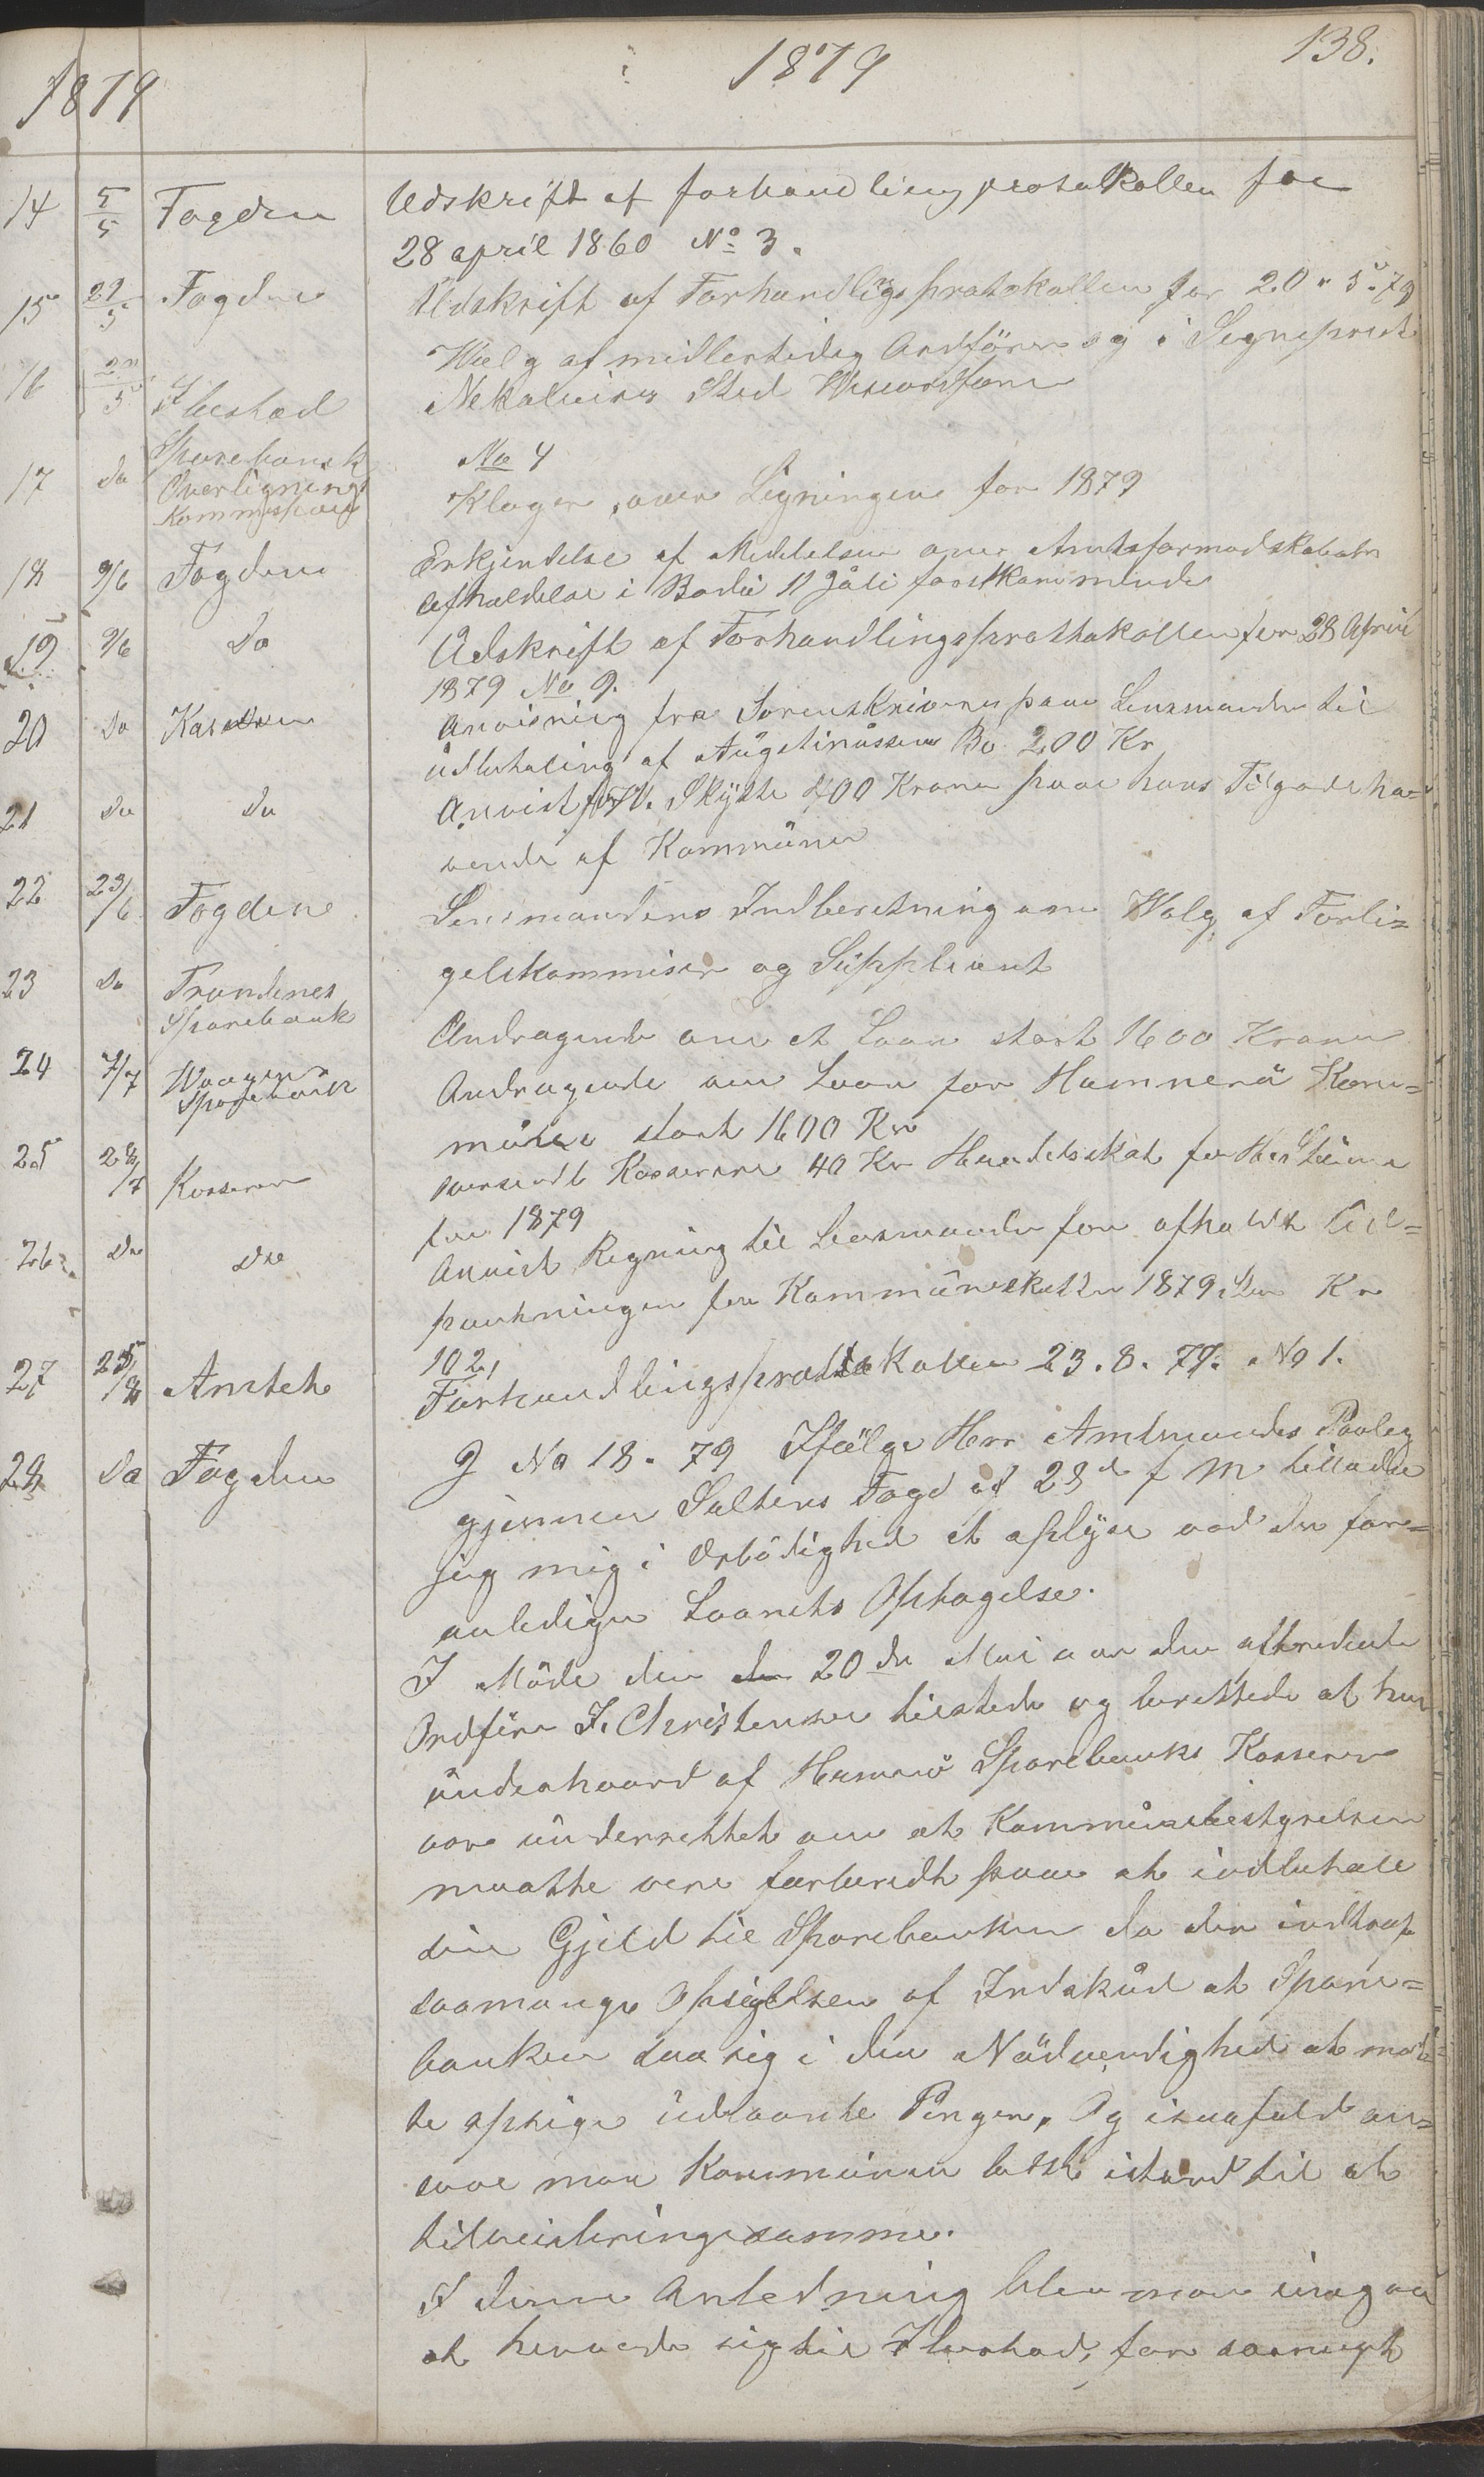 138.
1879
1879
14 5/5 Fogden Udskrift af forhandlingprotokollen for
28 april 1860 No 3.
15 29/5 Fogden Udskrift af Forhandligsprotokollen for 20 " 5 " 79
Valg af midlertidig Ordförer og i Sogneprest
16 5 Ibestad Sted Viseordförer
Sparebank No 4
17 Do Overlignings Klager over Ligningen for 1879
Kommission
18 9/6 Fogden Erkjendelse af Meddelsen over Amtsformandskabets
Afholdelse i Bodö 11 Juli förstkommende
19 9/6 Do Udskrift af Forhandlingsprottokollen for 28 April
1879 No 9.
20 Do Kasseren Anvisning fra Sorenskriveren paa Lensmanden til
udbetaling af Augstinussens Bo 200 Kr
21 Do Do Anvist for H. Skytte 400 Kroner paa hans Tilgodeha-
vende af Kommunen
22 23/6 Fogden Lensmandens Indberetning om Valg af Forli=
gelskommiser og Suppleant
23 Do Trondenes
Sparebank Andragende om et Laan stort 1600 Kroner
24 7/7 Vaagens
Sparebank Andragende om Laan for Hamnerö Kom=
mune stort 1600 Kr
25 28/7 Kasseren oversendt Kasseren 40 Kr Hundeskat for
for 1879
26 Do Do Anvist Regning til Lensmanden for afholdt Ud=
pantningen for Kommuneskatten 1879 Kr
102,
27 25/8 Amtet Forhandlingsprottokollen 23.8.79. No 1.
28 Do Fogden J No 18. 79 Ifölge Herr Amtmandes Paaleg
gjennem Saltens Fogd af 23d f M tillader
jeg mig i Ærbödighed at oplyse vad der for=
anlediger Laanets Optagelse.
I Möde den den 20de Mai var den aftredende
Ordförer J. Christensen tilstede og berettede at han
underhaand af Hamerö Sparebanks Kasserer
var underrettet om at Kommunebestyrelsen
maatte vere forberedt paa at indbetale
sin Gjeld til Sparebanken da der indtraf
saamange Opsigelser af Indskud at Spare=
banken saa sig i den Nödvendighed at maat=
te opsige udlaante Penger, Og isaafald an=
saae man Kommunen best istand til at
tilveiebringe samme.
I denne Anledning blev man enig om
at henvende sig til Ibestad, for saavidt